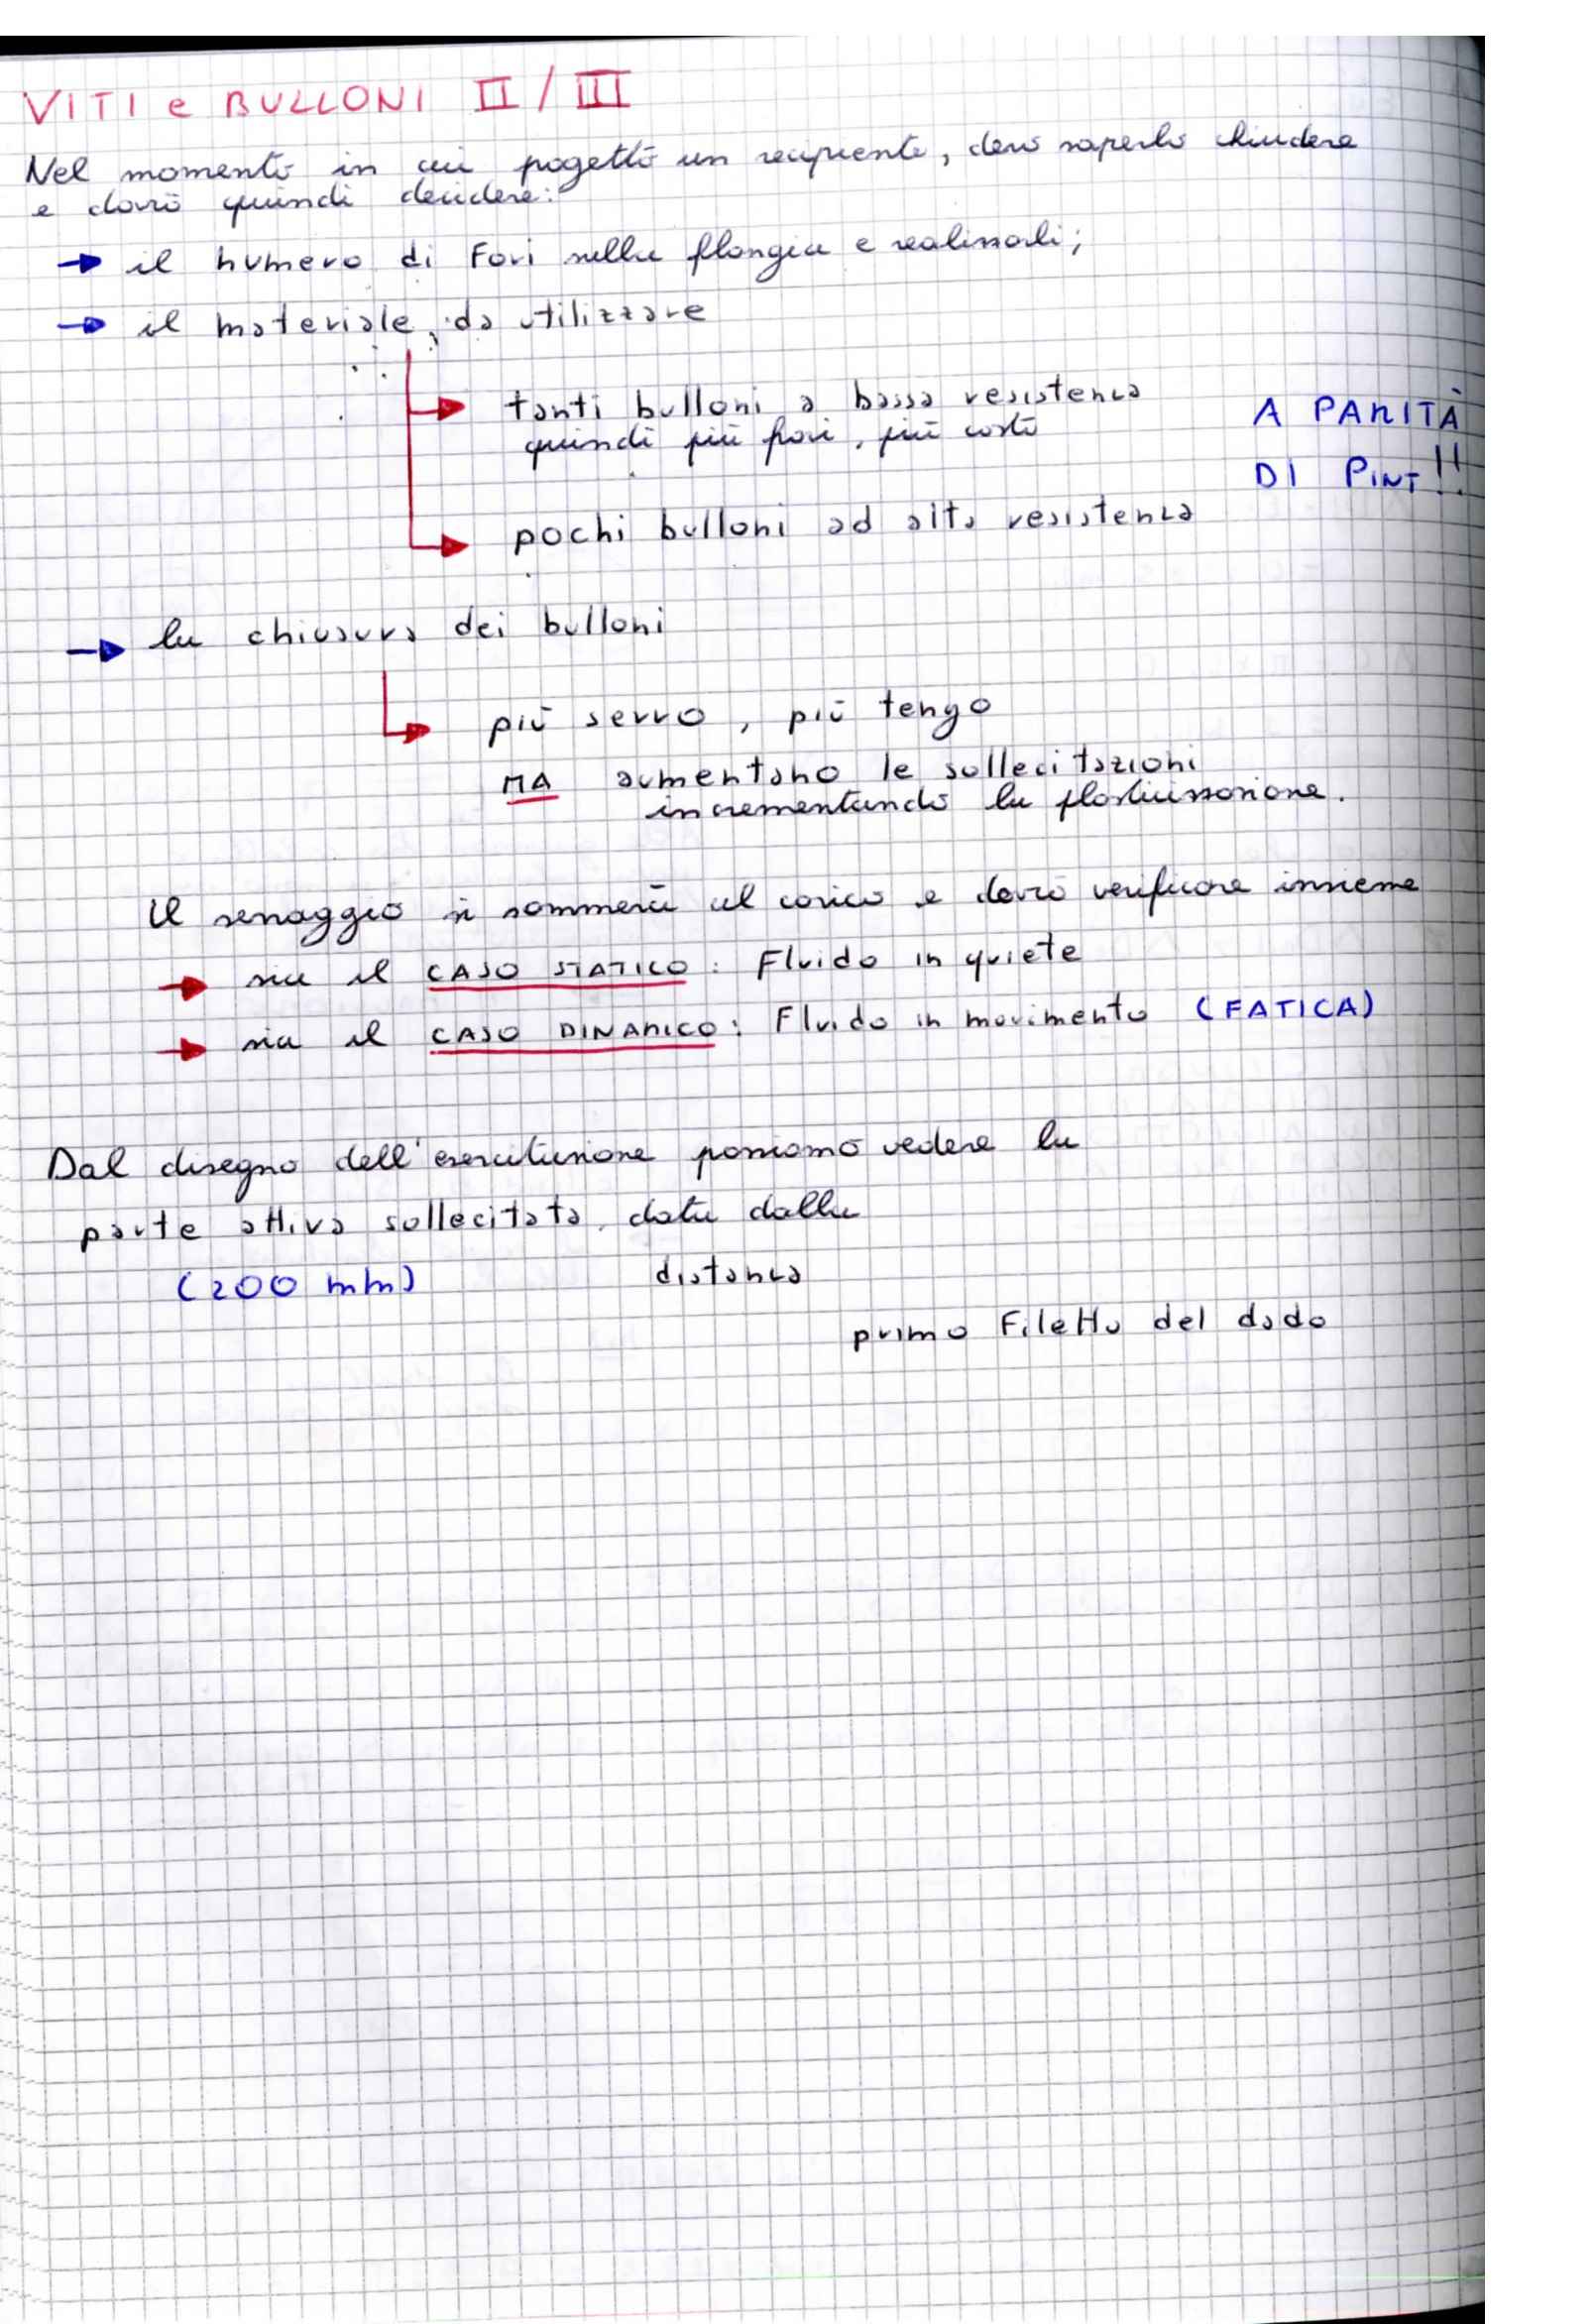 VITI e BULLONI II / III
Nel momento in cui pogetto un recipiente, devo saperlo chiudere
e dovrò quindi decidere:
→ il numero di Fori nella flangia e realizzarli;
→ il materiale da utilizzare
→ tanti bulloni a bassa resistenza
quindi più fori, più costo
A PARITÀ
DI PINT!!
→ pochi bulloni ad alta resistenza
→ la chiusura dei bulloni
→ più serro, più tengo
MA aumentano le sollecitazioni
incrementando la plasticizzazione.
Il serraggio si sommerà al carico e dovrò verificare insieme
→ sia il CASO STATICO: Fluido in quiete
→ sia il CASO DINAMICO: Fluido in movimento (FATICA)
Dal disegno dell'esercitazione possiamo vedere la
parte attiva sollecitata, data dalla
(200 mm) distanza
primo Filetto del dado